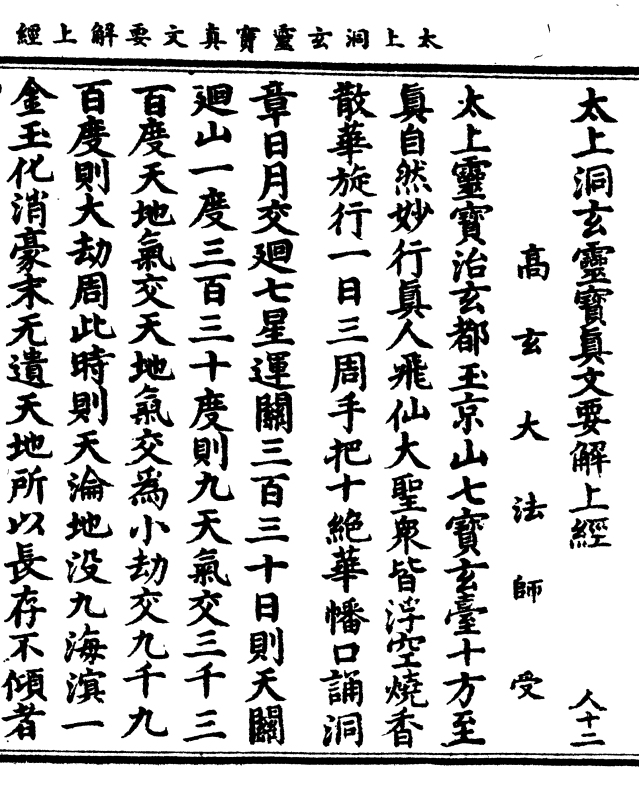 太上洞玄靈寳真文要解上經
太上洞玄靈寳真文要解上經
人十二
高玄大法師受
太上靈寳治玄都玉京山七寳玄臺十方至
真自然妙行真人飛仙大聖衆皆浮空燒香
散華旋行一日三周手把十絶華幡口誦洞
章日月交廻七星運關三百三十日則天關
廻山一度三百三十度則九天氣交三千三
百度天地氣交天地氣交為小劫交九千九
百度則大劫周此時則天淪地没九海溟一
金玉化消豪末无遺天地所以長存不傾者